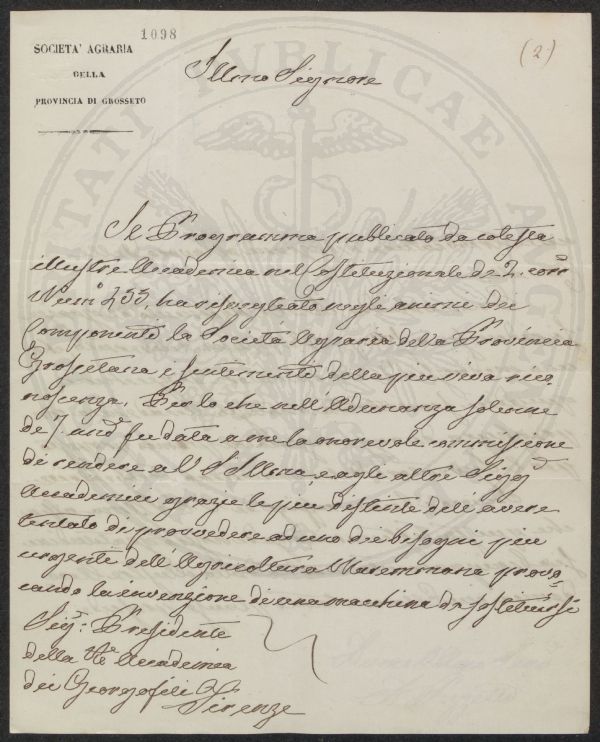 1098
(2)
SOCIETA' AGRARIA
DELLA
PROVINCIA DI GROSSETO
Illmo Signore
Il Programma publicato da cotesta
illustre Accademia nel Costituzionale de 2. corr
Num° 255, ha risvegliato negli animi dei
Componenti la Società Agraria della Provincia
Grossetana i sentimenti della più viva rico
noscenza. Per lo che nell'Adunanza solenne
de 7 and fu data a me la onorevole commissione
di rendere a V. S. Illma, e agli altri Sigg
Accademici grazie le più distinte dell'avere
tentato di provvedere ad uno dei bisogni più
urgenti dell'Agricoltura Maremmana provo
cando la invenzione di una macchina da sostituirsi
Sig: Presidente
della Accademia
dei Georgofili
Firenze
PUBLICAE